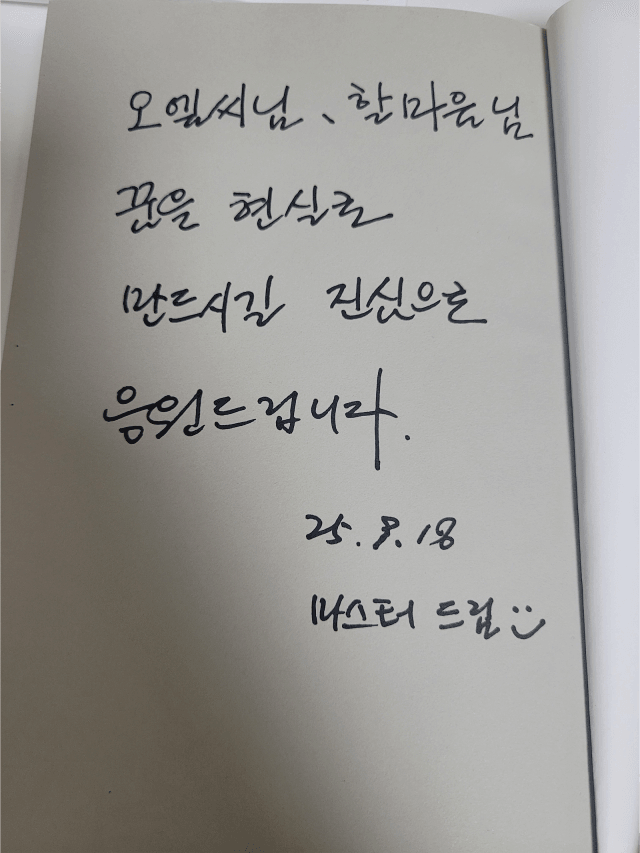 오엘씨님、한마음님
꿈을 현실로
만드시길 진심으로
응원드립니다.
25. 9. 18
마스터 드림 :)